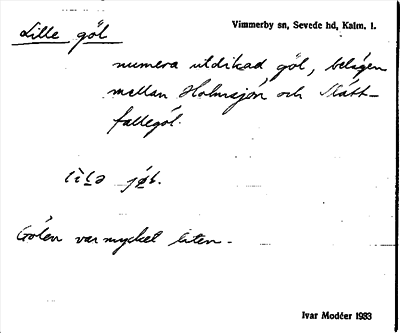 Vimmerby sn, Sevede hd, Kalm. l.
Lille göl
numera utdikad göl, belägen
mellan Holmsjön och Slått-
fallegöl.
Gölen var mycket liten.
Ivar Modéer 1933